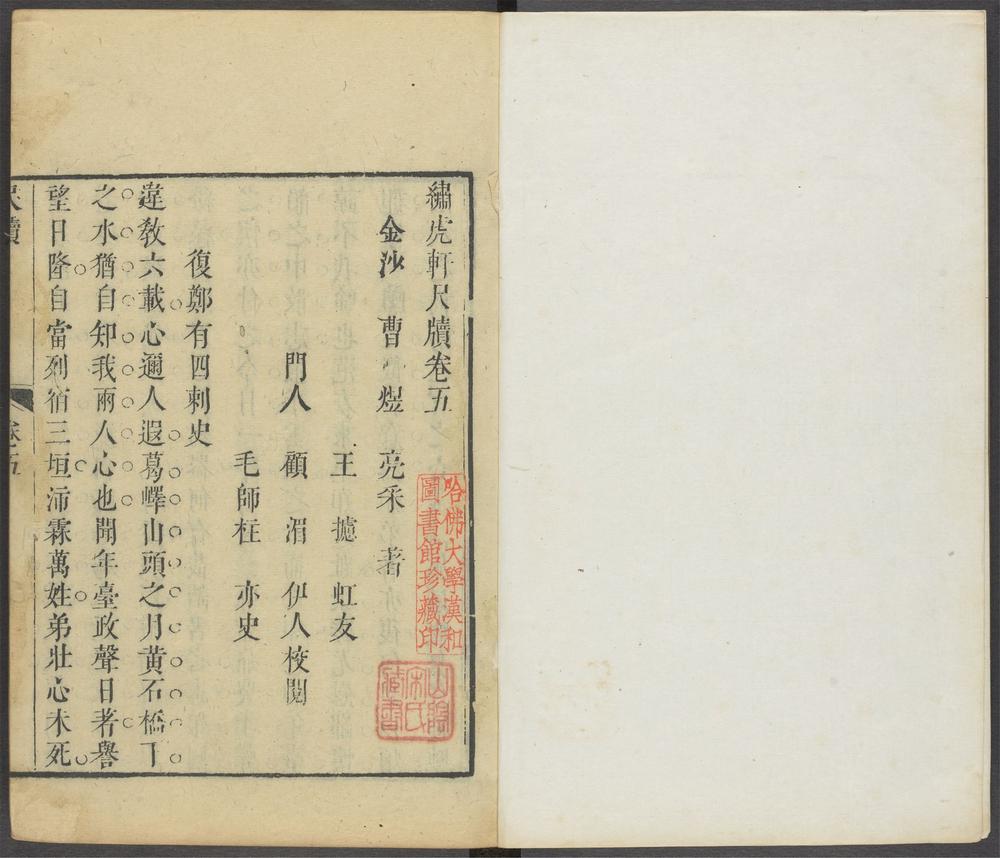 繡虎軒尺牘卷五
金沙 曹煜 亮采 著
王攄 虹友
門人 顧湄 伊人校閱
毛師柱 亦史
復鄭有四刺史
違教六載心邇人遐葛嶧山頭之月黄石橋下
之水猶自知我兩人心也聞年臺政聲日著譽
望日隆自當列宿三垣沛霖萬姓弟壯心未死
尺牘 卷五
哈佛大學漢和
圖書館珍藏印
山陰
宋氏
藏書